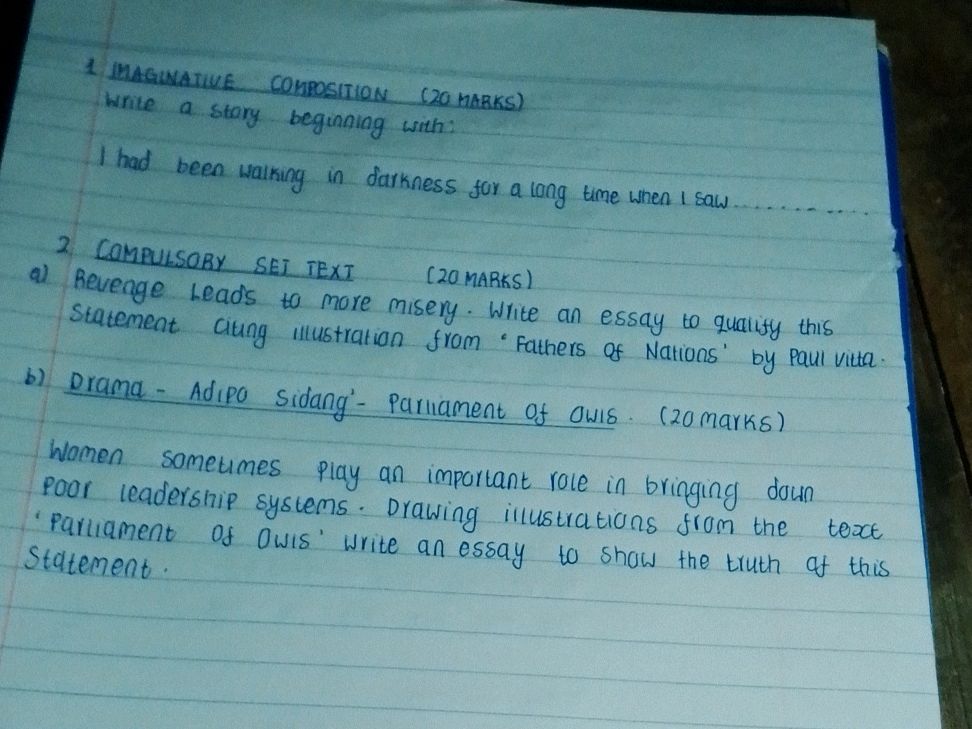 1 IMAGINATIVE COMPOSITION (20 MARKS)
Write a story beginning with:
I had been walking in darkness for a long time when I saw..............
2 COMPULSORY SET TEXT (20 MARKS)
a) Revenge Leads to more misery. Write an essay to qualify this
Statement citing illustration from 'Fathers of Nations' by Paul Vitta.
b) Drama - Adipo Sidang' - Parliament Of Owls. (20 marks)
Women sometimes play an important role in bringing down
poor leadership systems. Drawing illustrations from the text
'Parliament Of Owls' write an essay to show the truth of this
Statement.